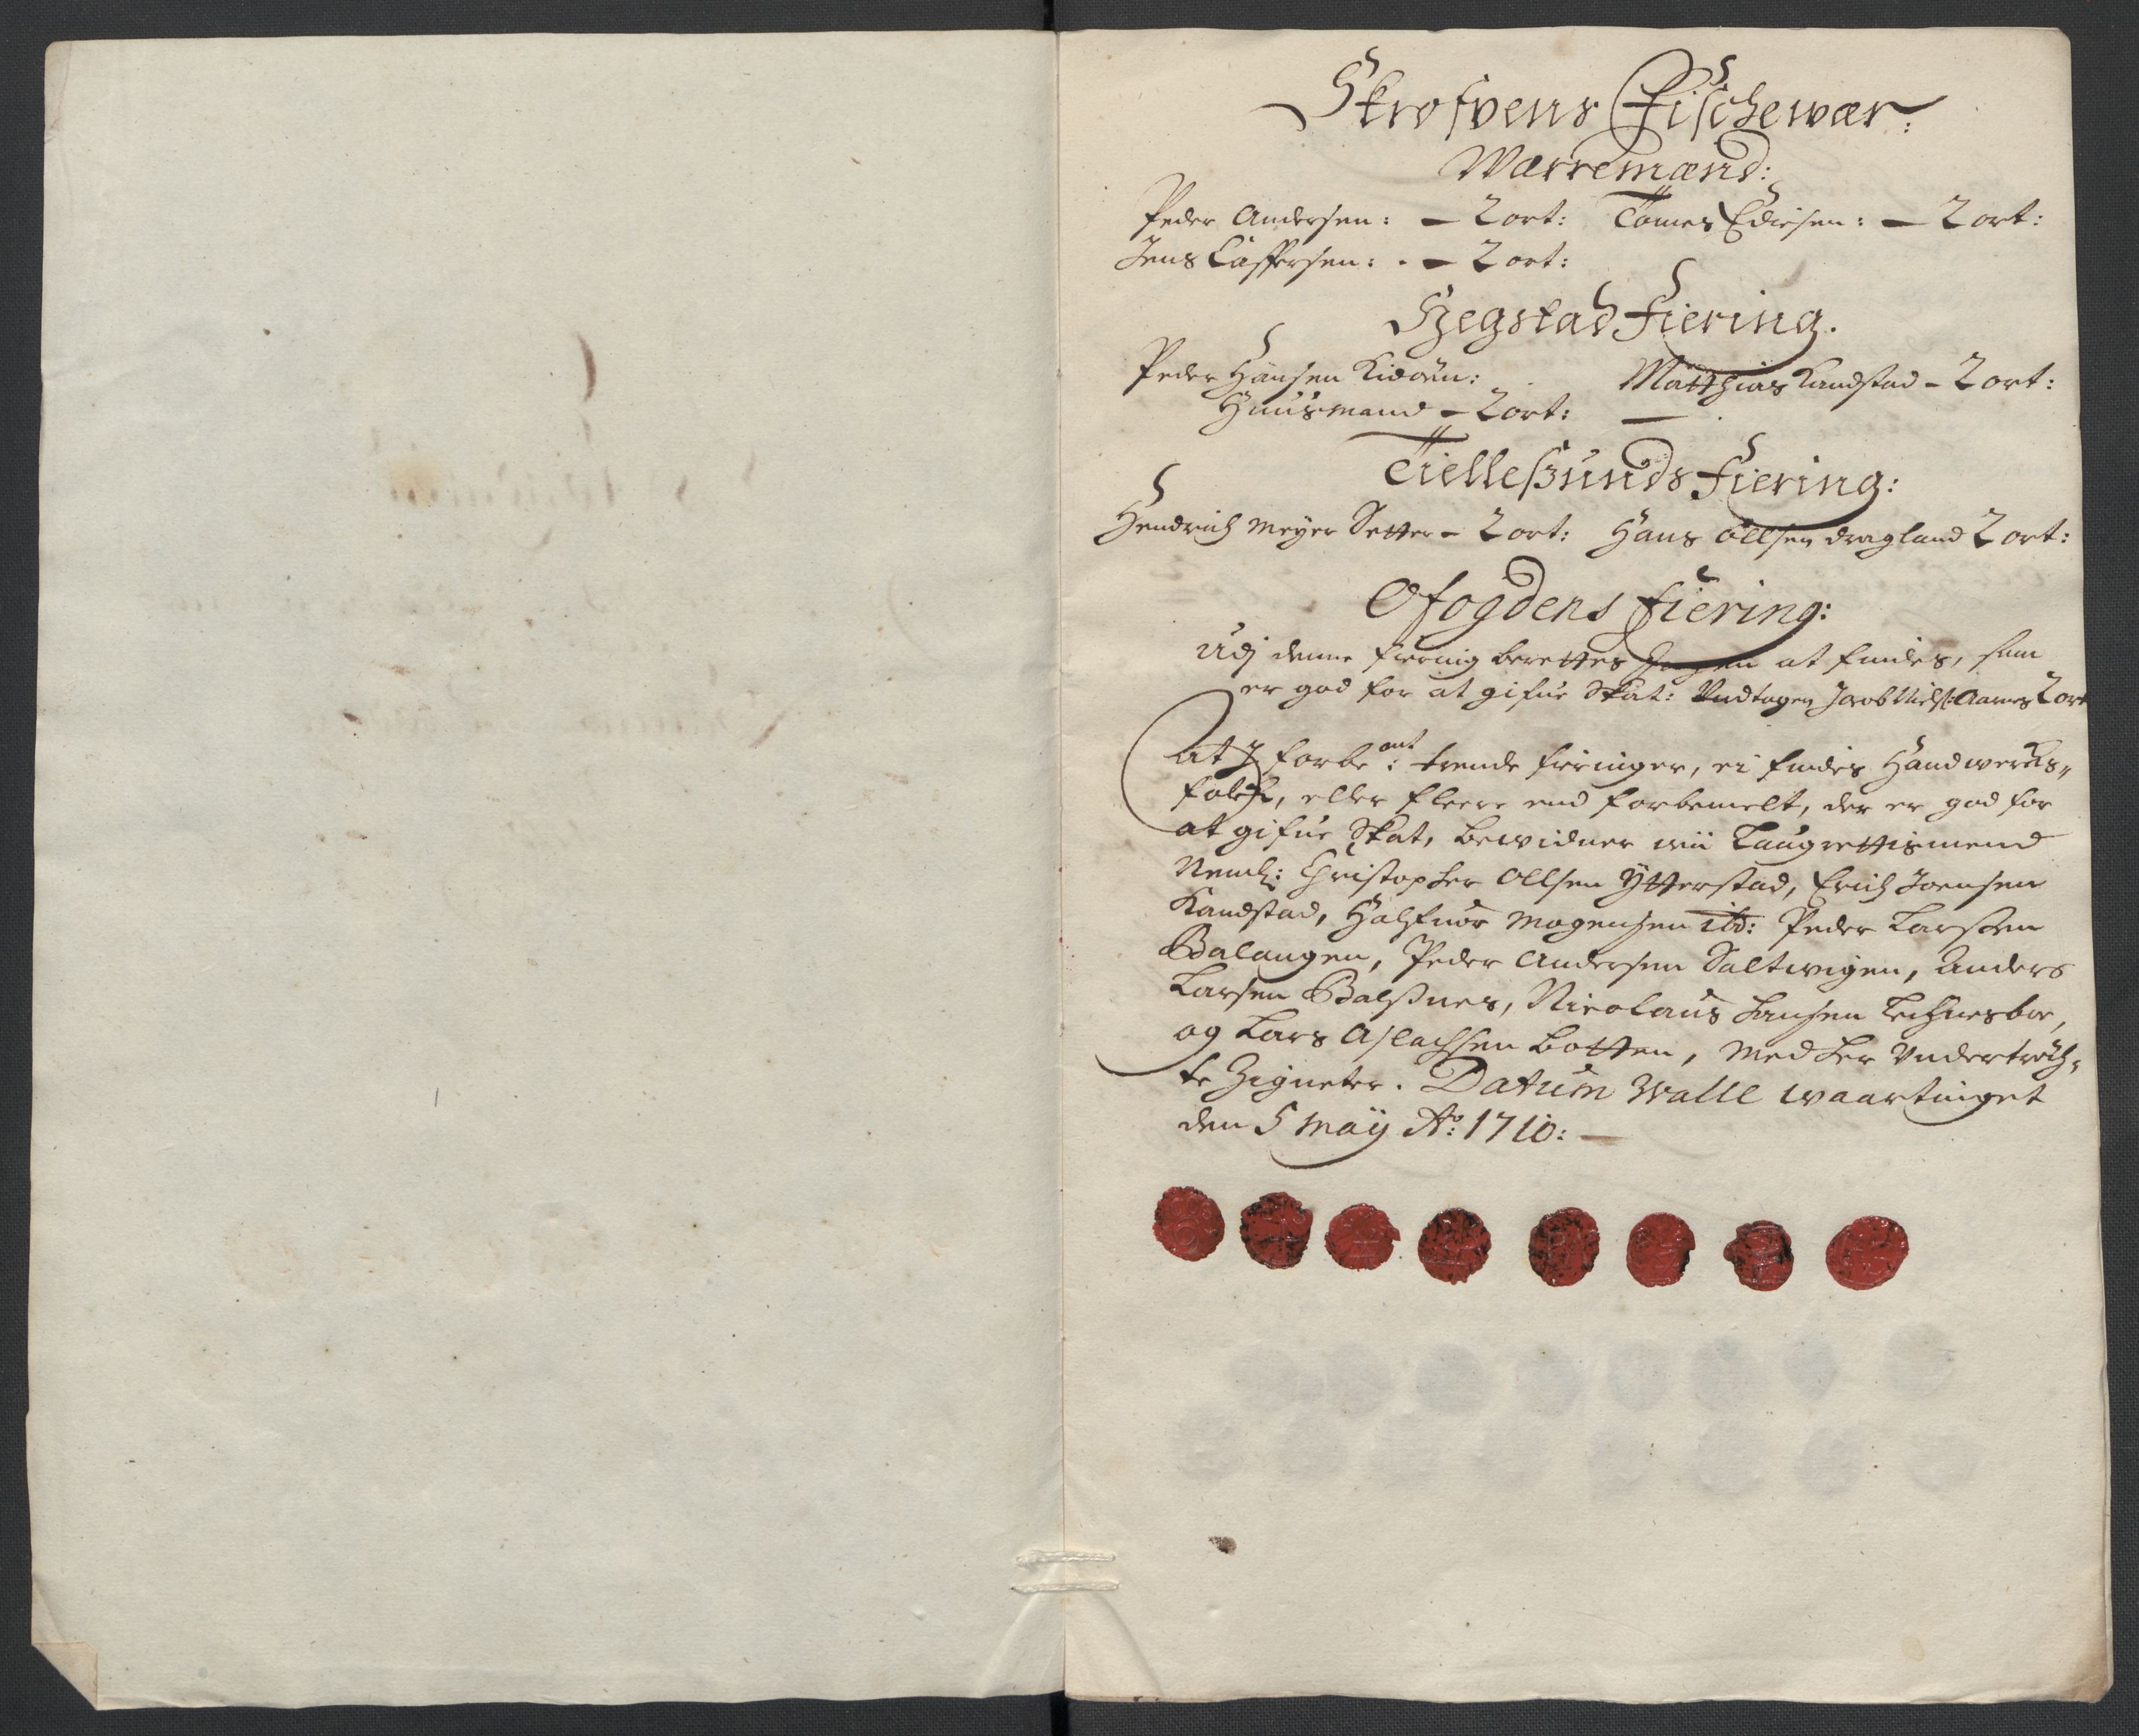 Skrofvens Fischewær:
Wærremænd:
Peder Andersen: – 2 ort: Tomes Edisen: – 2 ort:
Jens Casspersen: – 2 ort:
Hegstad Fiering.
Peder Hansen Kidöen: Matthias Kandstad – 2 ort:
Huusmand – 2 ort:
TielleSunds Fiering:
Hendrich Meyer Setter – 2 ort: Hans Ollsen Dragland 2 ort:
Ofogdens fiering:
Udj denne fiering berettes Ingen at findes, som
er god for at gifue Skat: Undtagen Jacob Niels: Aarnes 2 ort
At J forbe:mt trende fieringer, ei findes Handwercks-
folch, eller fleere end forbemelt, der er god for
at gifue Skat, bewidner wii Laugrettismend
Neml: Christopher Ollsen Ytterstad, Erich Joensen
Kandstad, Halfuor Mogensen ibd: Peder Larssen
Balangen, Peder Andersen Saltwigen, Anders
Larsen Balssnes, Nicolaus Hansen
og Lars Aslachsen Botten, med her Undertröch-
te Zigneter. Datum Walle waartinget
den 5 Maij Ao: 1710: